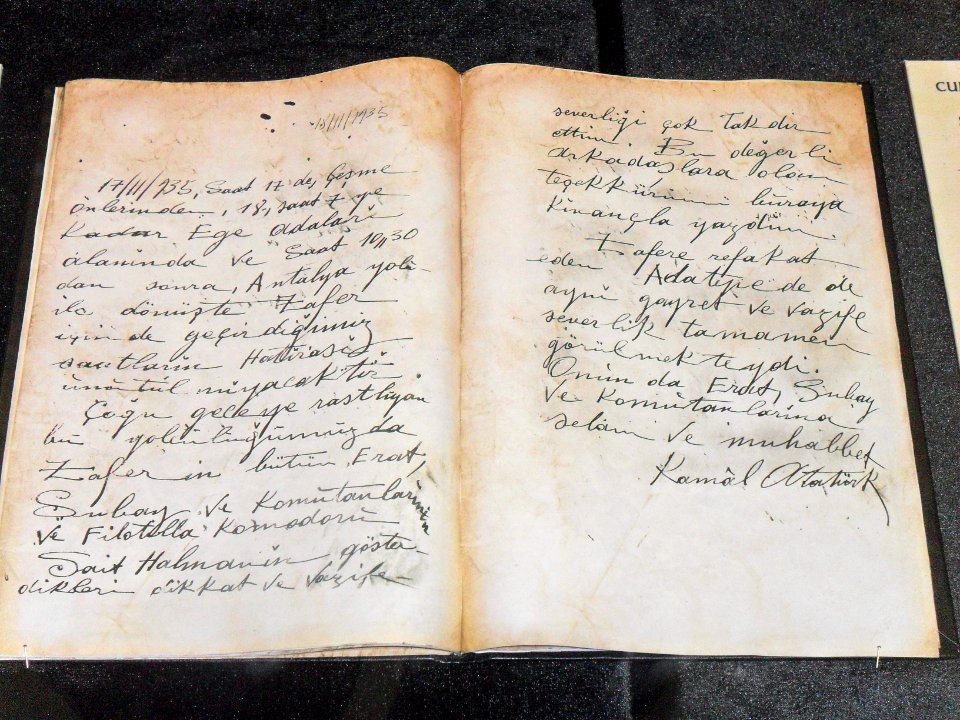 18/11/1935
17/11/935, Saat 17 de, Çeşme
önlerinden, 18, saat 7 ye
kadar Ege adaları
alanında ve Saat 10,30
dan sonra, Antalya yolu-
ile dönüşte Zafer
içinde geçirdiğimiz
saatların Hatırası
ünütülmıyacaktır
Çoğu geceye rastlıyan
bu yolculuğumuzda
Zafer in bütün Erat,
Subay ve Komutanlarinin
ve Filotilla Komodoru
Sait Halmanin göste-
dikleri dikkat ve vazife-
severliği çok takdir
ettim Bu değerli
arkadaşlara olan
teşekkürümü buraya
kıvançla yazdım.
Zafere refakat
eden Adatepe de de
ayni gayret ve vazife
severlik tamamen
görülmekteydi.
Onun da Erat, Subay
ve Komutanlarina
selâm ve muhabbet
Kamâl Atatürk
CU